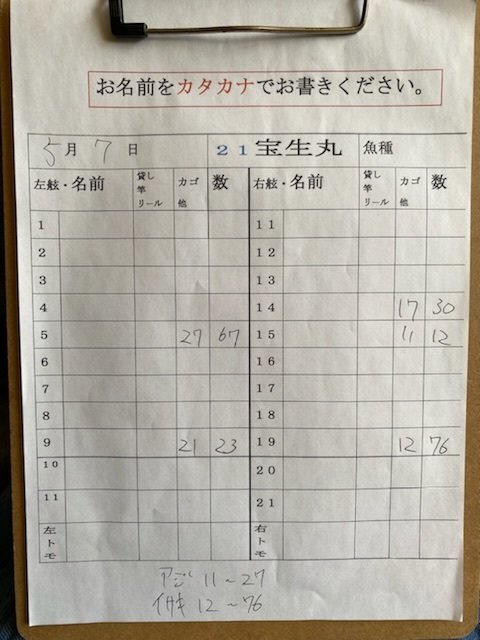 お名前をカタカナでお書きください。
5月 7日 21宝生丸 魚種
左舷・名前 貸し竿リール カゴ他 数 右舷・名前 貸し竿リール カゴ他 数
1 11
2 12
3 13
4 14 17 30
5 27 67 15 11 12
6 16
7 17
8 18
9 21 23 19 12 76
10 20
11 21
左トモ 右トモ
アジ 11～27
イサキ 12～76